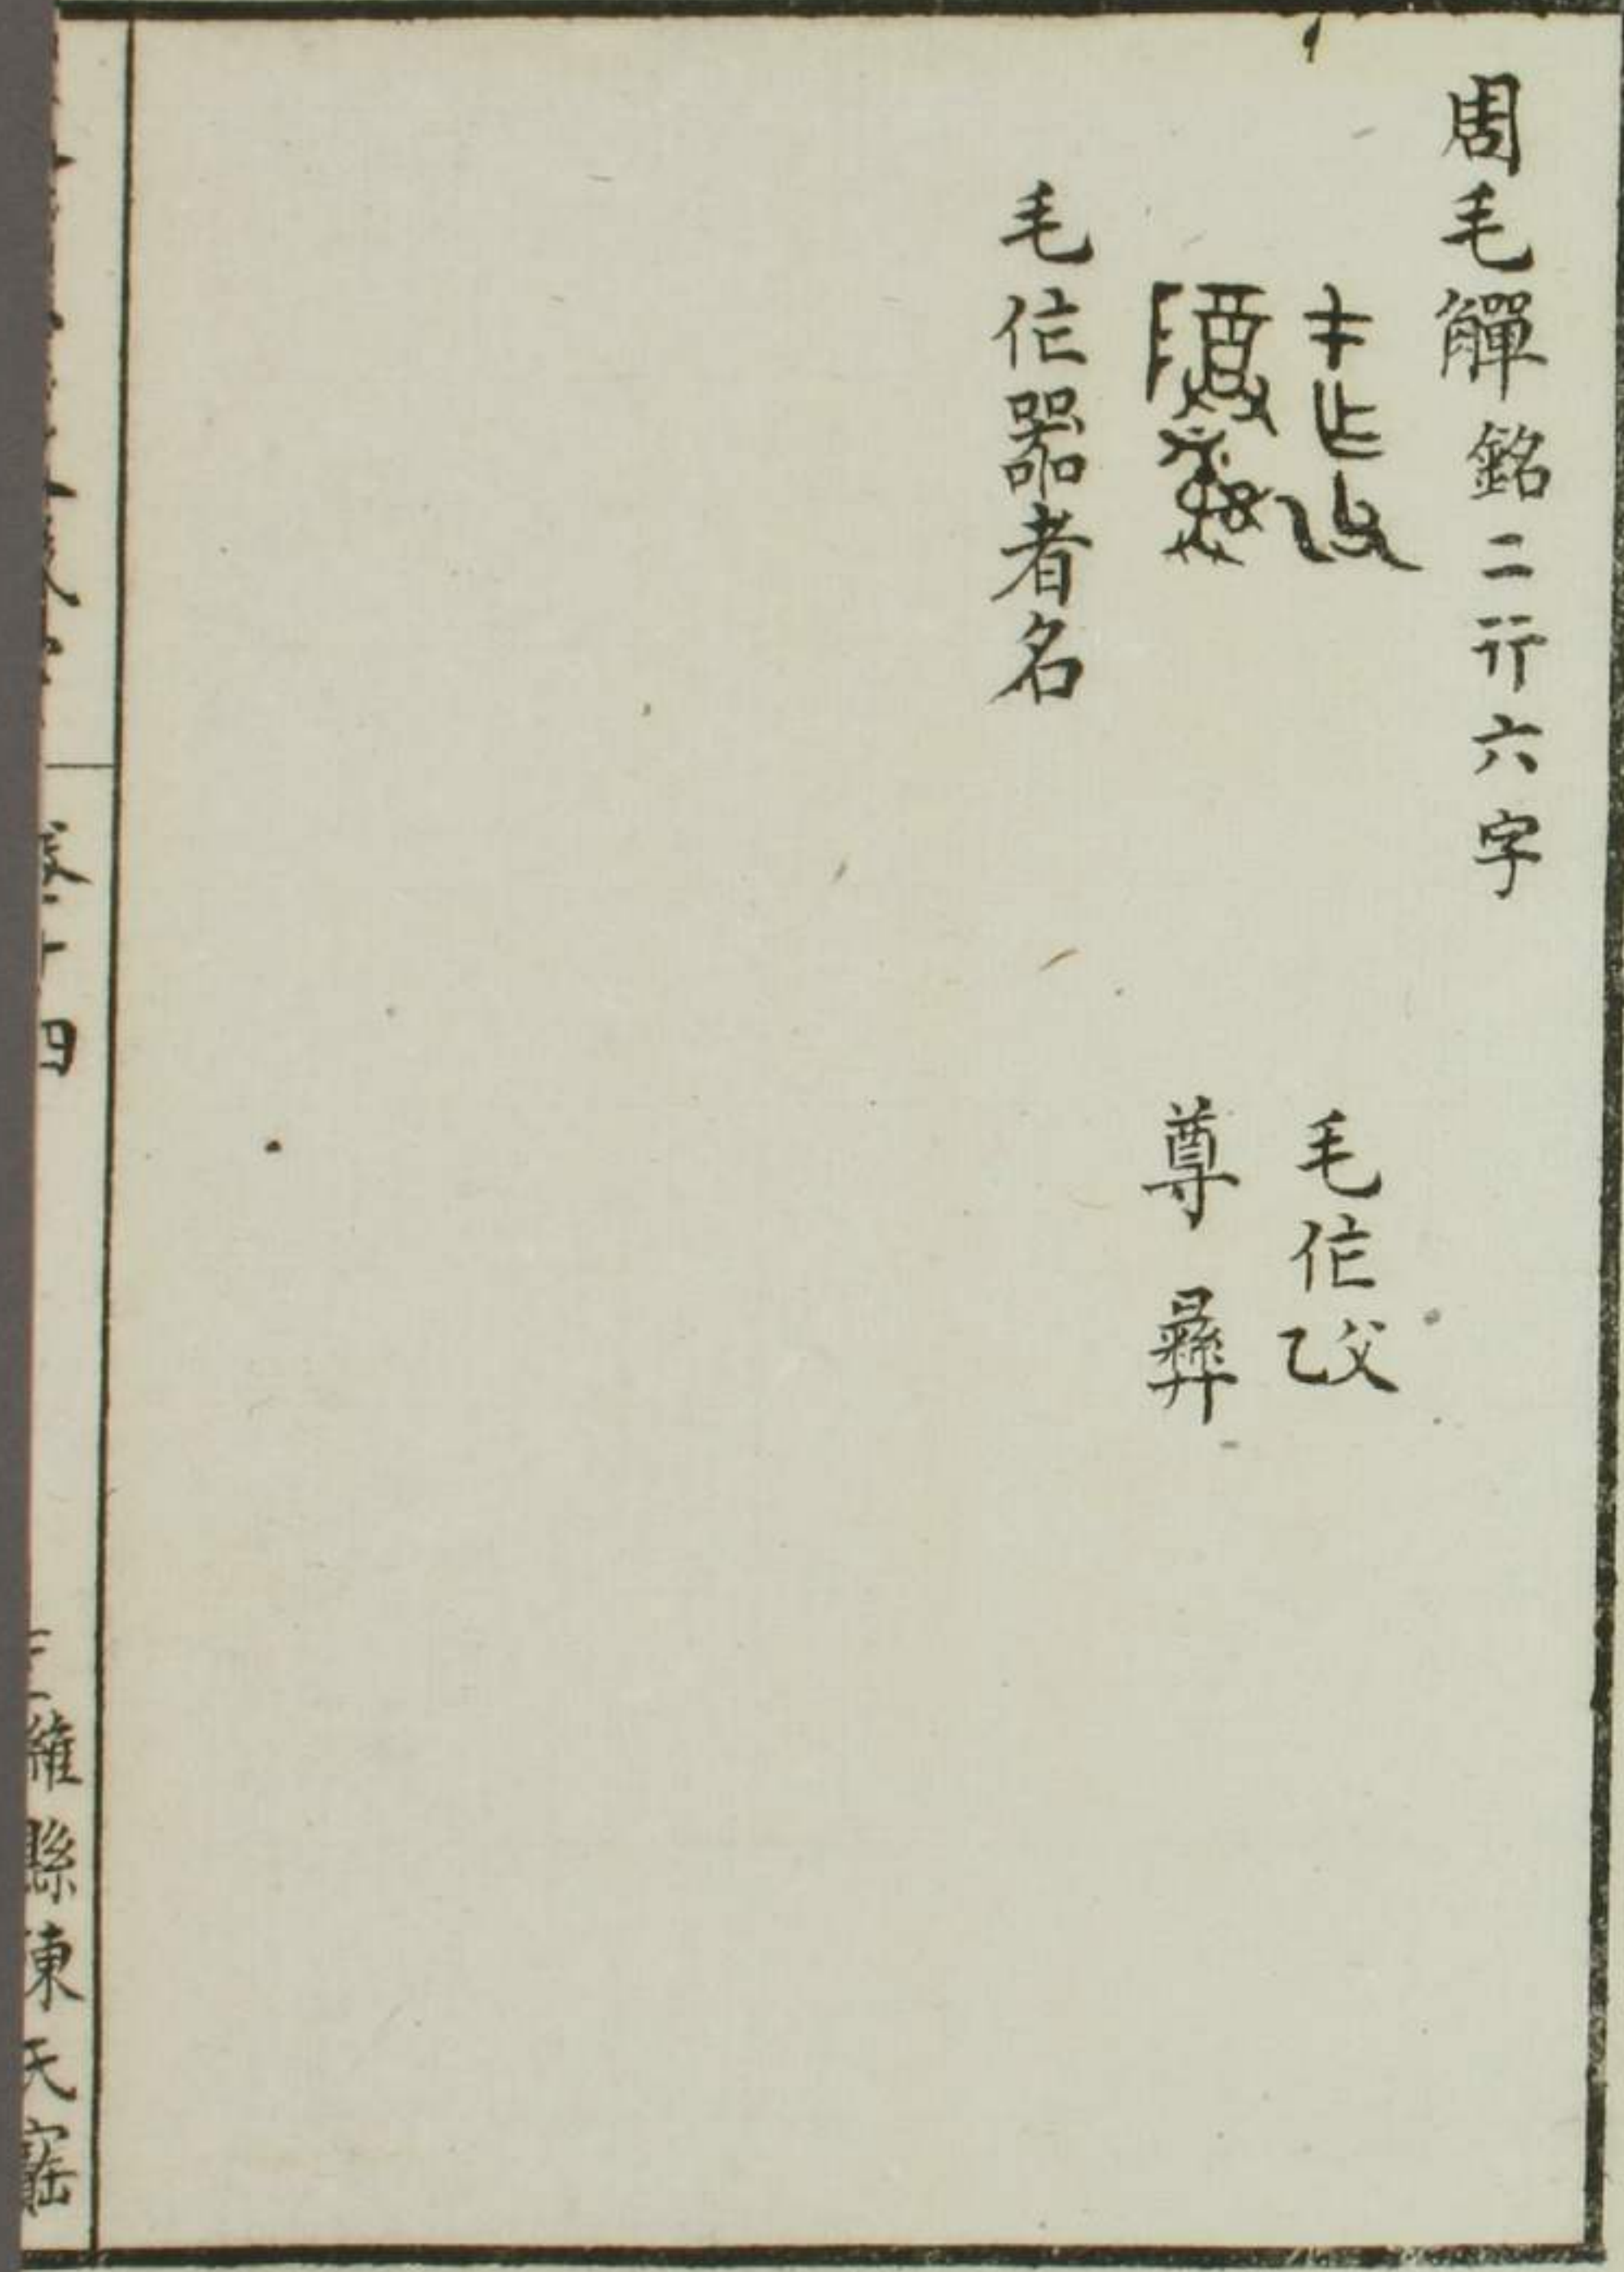 周毛觶銘二行六字
毛作父乙
尊彝
毛作器者名
卷十四
濰縣陳氏寶